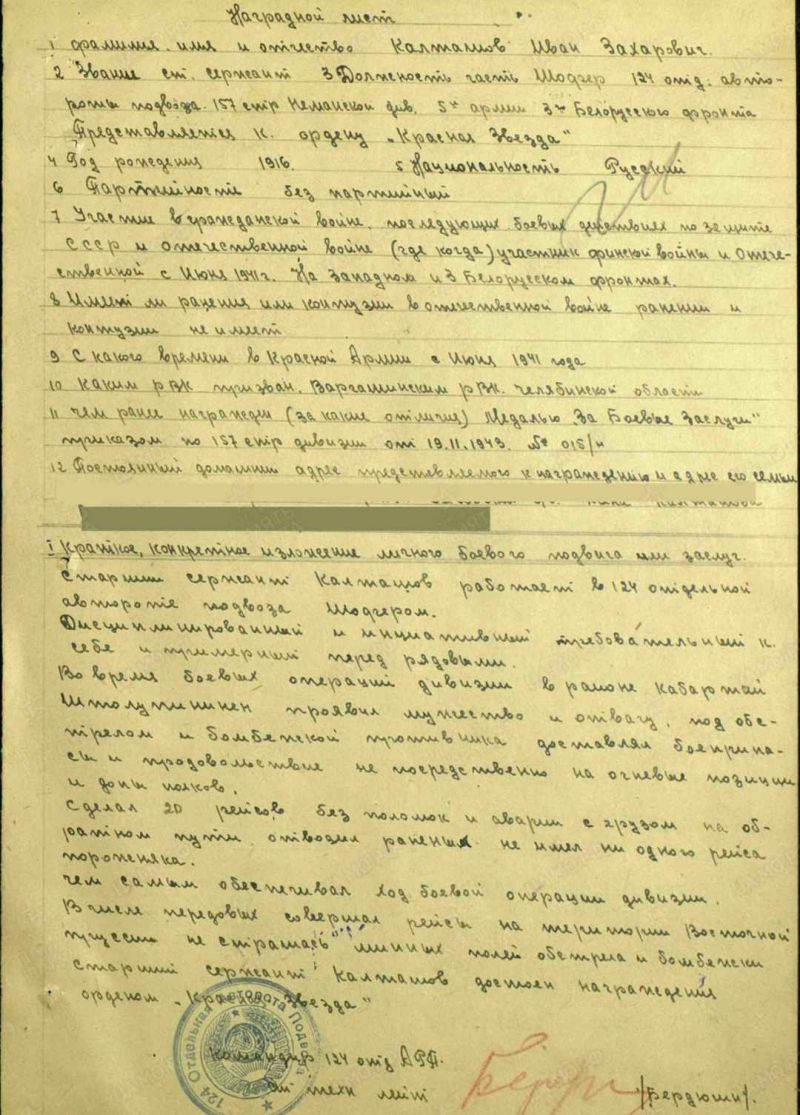 Наградной лист
1 фамилия. имя и отчество Калташов Иван Захарович.
2 Звание ст. сержант 3 Должность часть Шофер 124 отд. авто-
роты подвоза. 157 стр Неманской див. 5й армии 3го Белорусского фронта
Представляется к. ордену „Красная Звезда"
4 Год рождения 1916. 5 Национальность Русский
6 Партийность без партийный
7 Участие в гражданской войне. последующих боевых действиях по защите
СССР и отечественной войне (где когда) участник финской войны и Отече-
ственной с Июня 1941г. На Западном и 3 Белорусском фронтах.
8 Имеет ли ранения или контузии в отечественной войне ранении и
контузии не имеет
9 С какого времени в Красной Армии с Июня 1941 года
10 Каким РВК призван. Варгашинским РВК. Челябинской области
11 чем ранее награжден (за какие отличия) Медалью „За Боевые Заслуги"
приказом по 157 стр дивизии от 19.11.1943. № 015/н
12 Постоянный домашний адрес представляемого к награждению и адрес его семьи
I Краткое, конкретное изложение личного боевого подвига или заслуг.
Старшии сержант Калташов работает в 124 отдельной
автороте подвоза Шофером.
Дисциплинированный и инициативный требовательный к
себе и примерный перед рядовыми.
Во время боевых операций дивизии в районе Кабартай
Шталупинен проявил мужество и отвагу. под обс-
трелом и бомбежкой противника доставлял боеприпа-
сы и продовольствие не посредственно на огневые позиции
и допы полков.
Сделал 20 рейсов без поломок и аварии с грузом на об-
ратном пути отвозил раненых не имел ни одного рейса
порожняка.
Чем самым обеспечивал ход боевой операции дивизии.
В числе передовых совершал рейсы на територии Восточной
Пруссии не страшась минных полей обстрела и бомбежки
Старший сержант Калташов достоен награждения
орденом „Красная Звезда"
124 Отдельная Авторота Подвоза
Командир 124 отд АРП.
техн лейт /Бердюгин/.